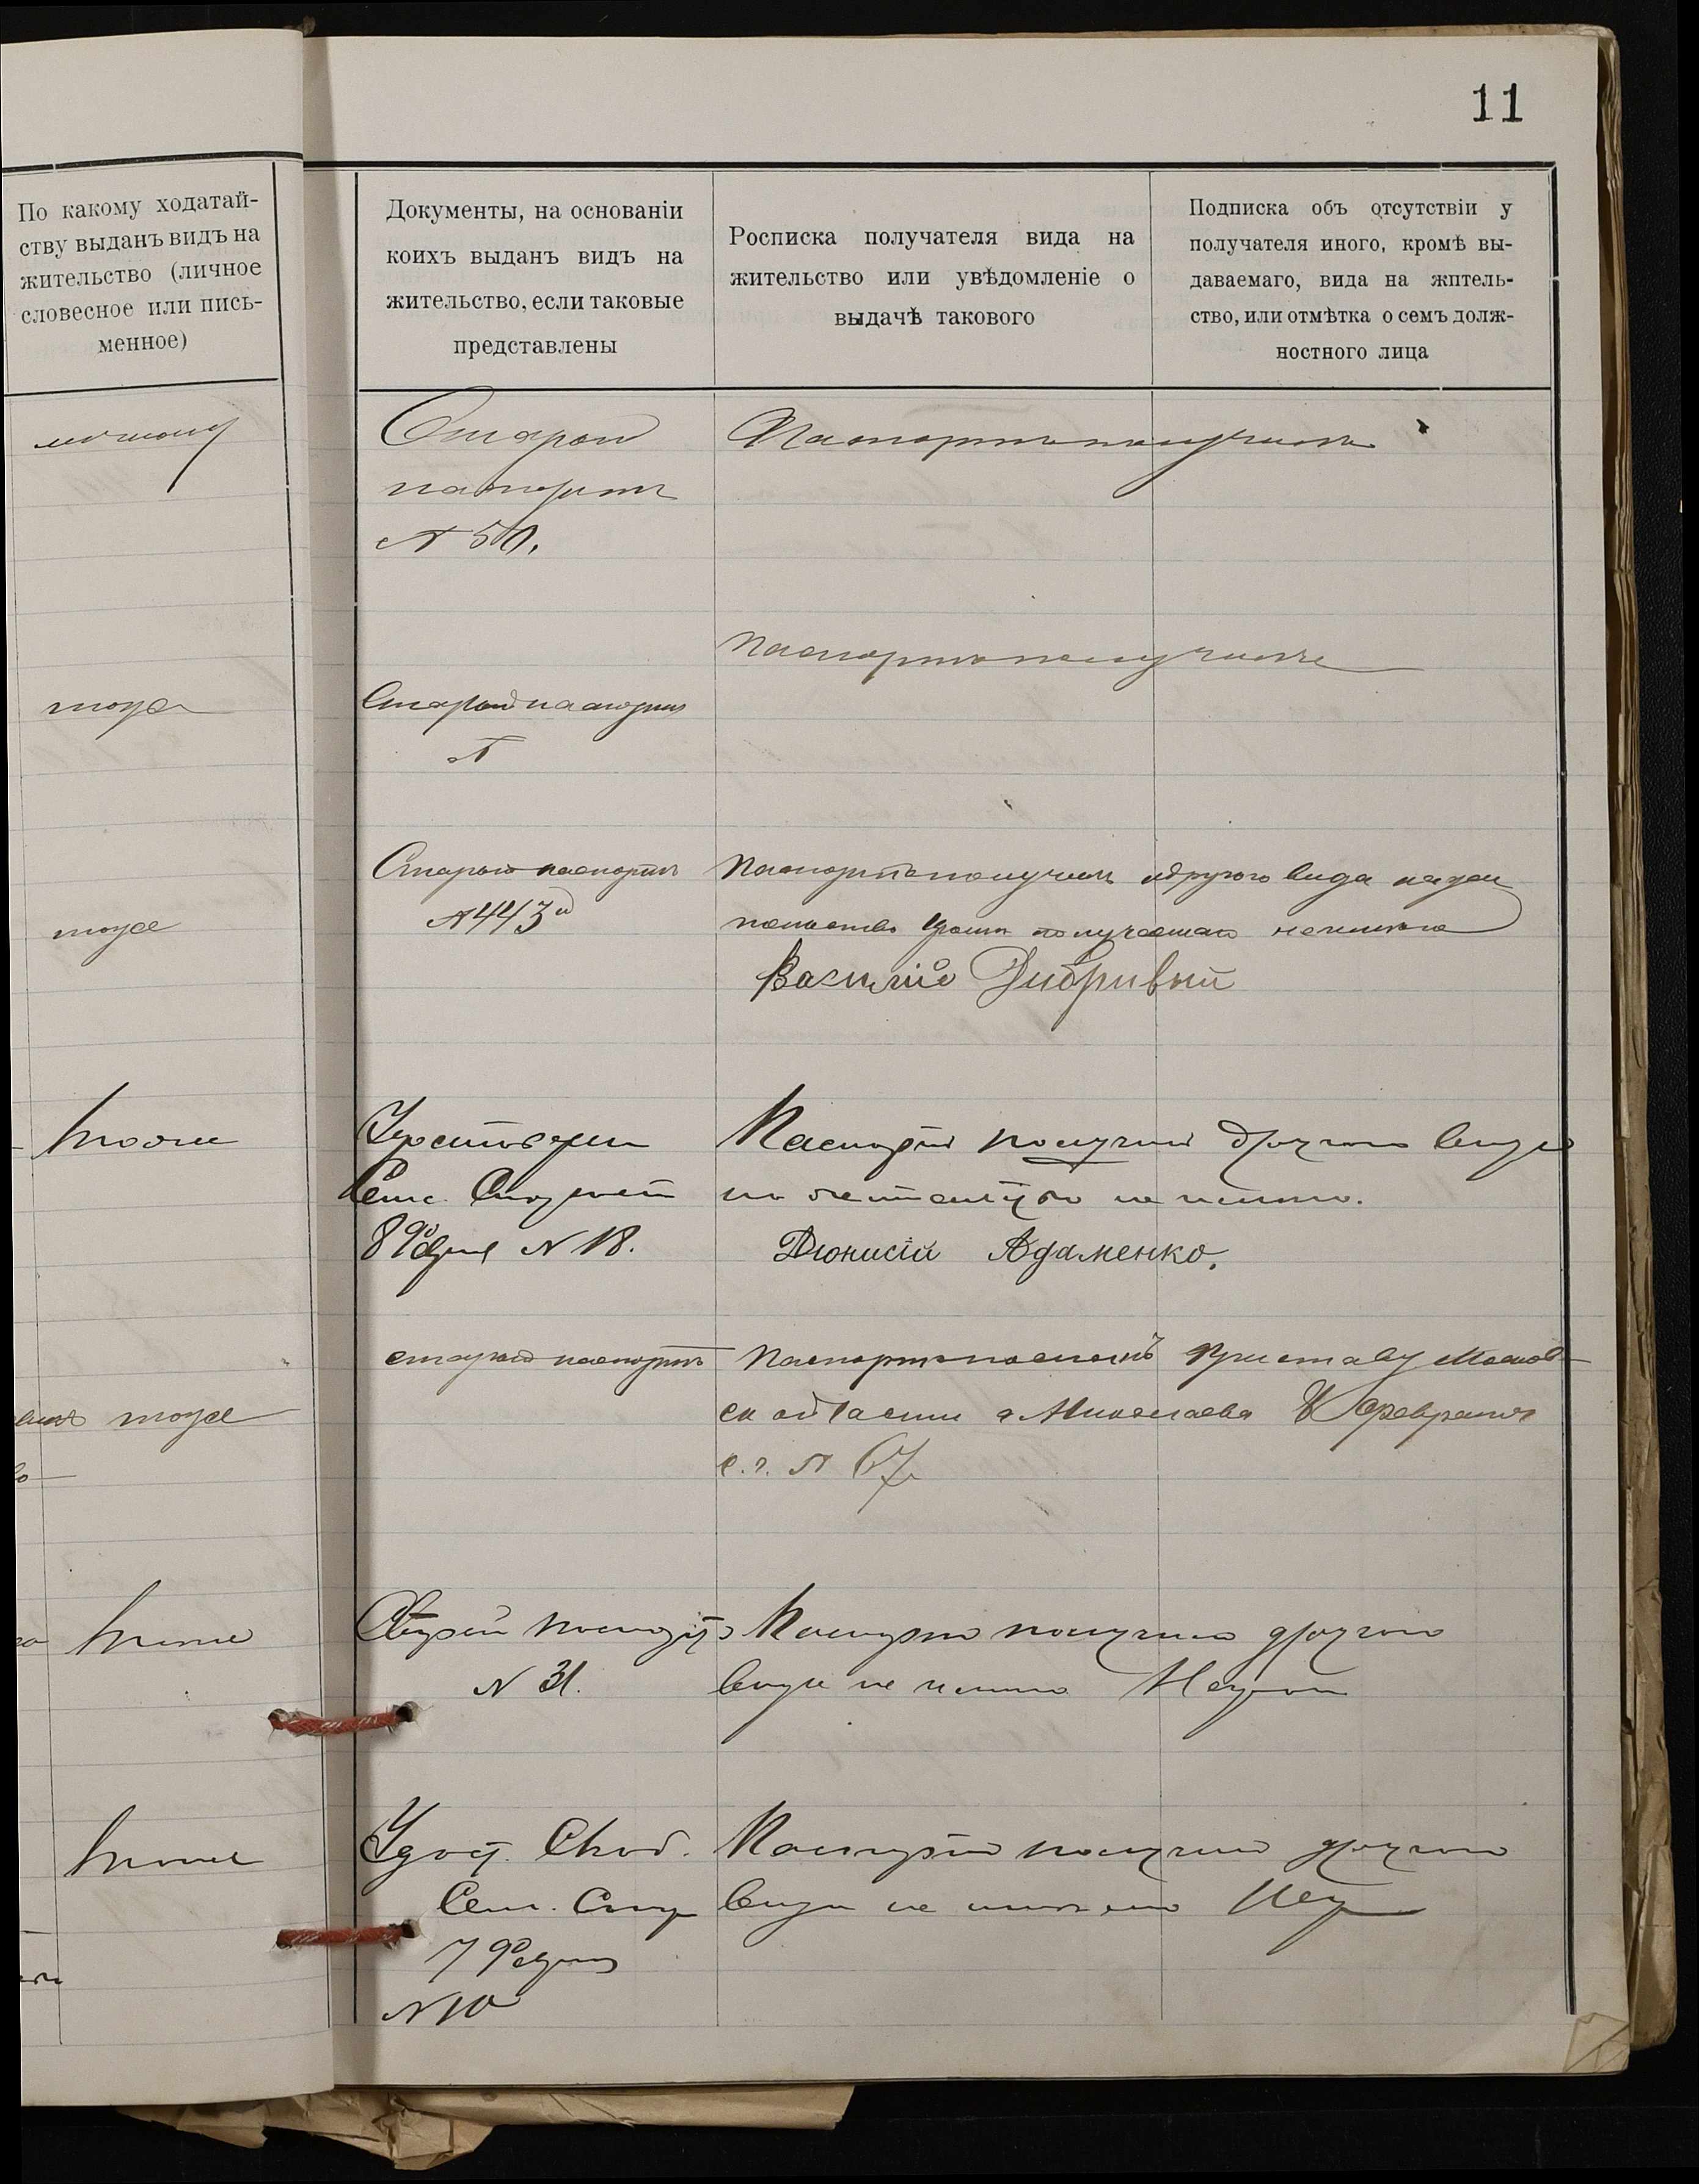 11
По какому ходатай-
ству выданъ видъ на
жительство (личное
словесное или пись-
менное)
Документы, на основаніи
коихъ выданъ видъ на
жительство, если таковые
представлены
Росписка получателя вида на
жительство или увѣдомленіе о
выдачѣ такового
Подписка объ отсутствіи у
получателя иного, кромѣ вы-
даваемаго, вида на жптель-
ство, или отмѣтка о семъ долж-
ностного лица
личному
Старой
паспортъ
№ 50.
Паспортъ получилъ
тоже
Старой паспортъ
№
Паспортъ получилъ
тоже
Старой паспортъ
№ 443
Паспортъ получилъ другого вида на
получаемаго не имею
Василій
тоже
Удостоверен
Сел.
8 № 18.
Паспортъ получилъ другого вида
на жительство не имею.
Діонисій Адаменко.
тоже
старой паспортъ
Паспортъ посланъ Приставу
области г Николаева 8 Февраля
с. г. № 67
тоже
Старой паспортъ
№ 31.
Паспортъ получилъ другого
вида не имею
тоже
Удост.
Сел.
7 Февраля
№ 10
Паспортъ получилъ другого
вида не имею